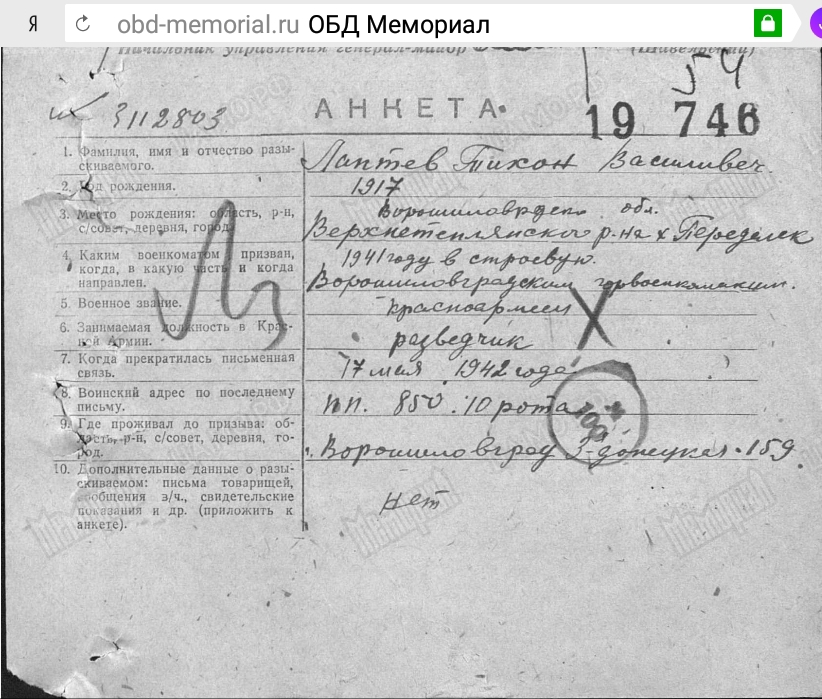 Я obd-memorial.ru ОБД Мемориал
Начальник управления генерал-майор (Шавельский)
54
3112803 АНКЕТА. 19 746
1. Фамилия, имя и отчество разыскиваемого. Лаптев Тихон Василивеч
2. Год рождения. 1917
3. Место рождения: область, р-н, с/совет, деревня, город. обл.
р-на х Передельск
4. Каким военкоматом призван, когда, в какую часть и когда направлен. 1941 году в строевую.
Ворошиловградским горвоенкоматим.
5. Военное звание. Красноармеец
6. Занимаемая должность в Красной Армии. разведчик
7. Когда прекратилась письменная связь. 17 мая 1942 года.
8. Воинский адрес по последнему письму. пп. 850. 10 рота
9. Где проживал до призыва: область, р-н, с/совет, деревня, город. Ворошиловград 3-донецкая. 159.
10. Дополнительные данные о разыскиваемом: письма товарищей, сообщения з/ч., свидетельские показания и др. (приложить к анкете). нет